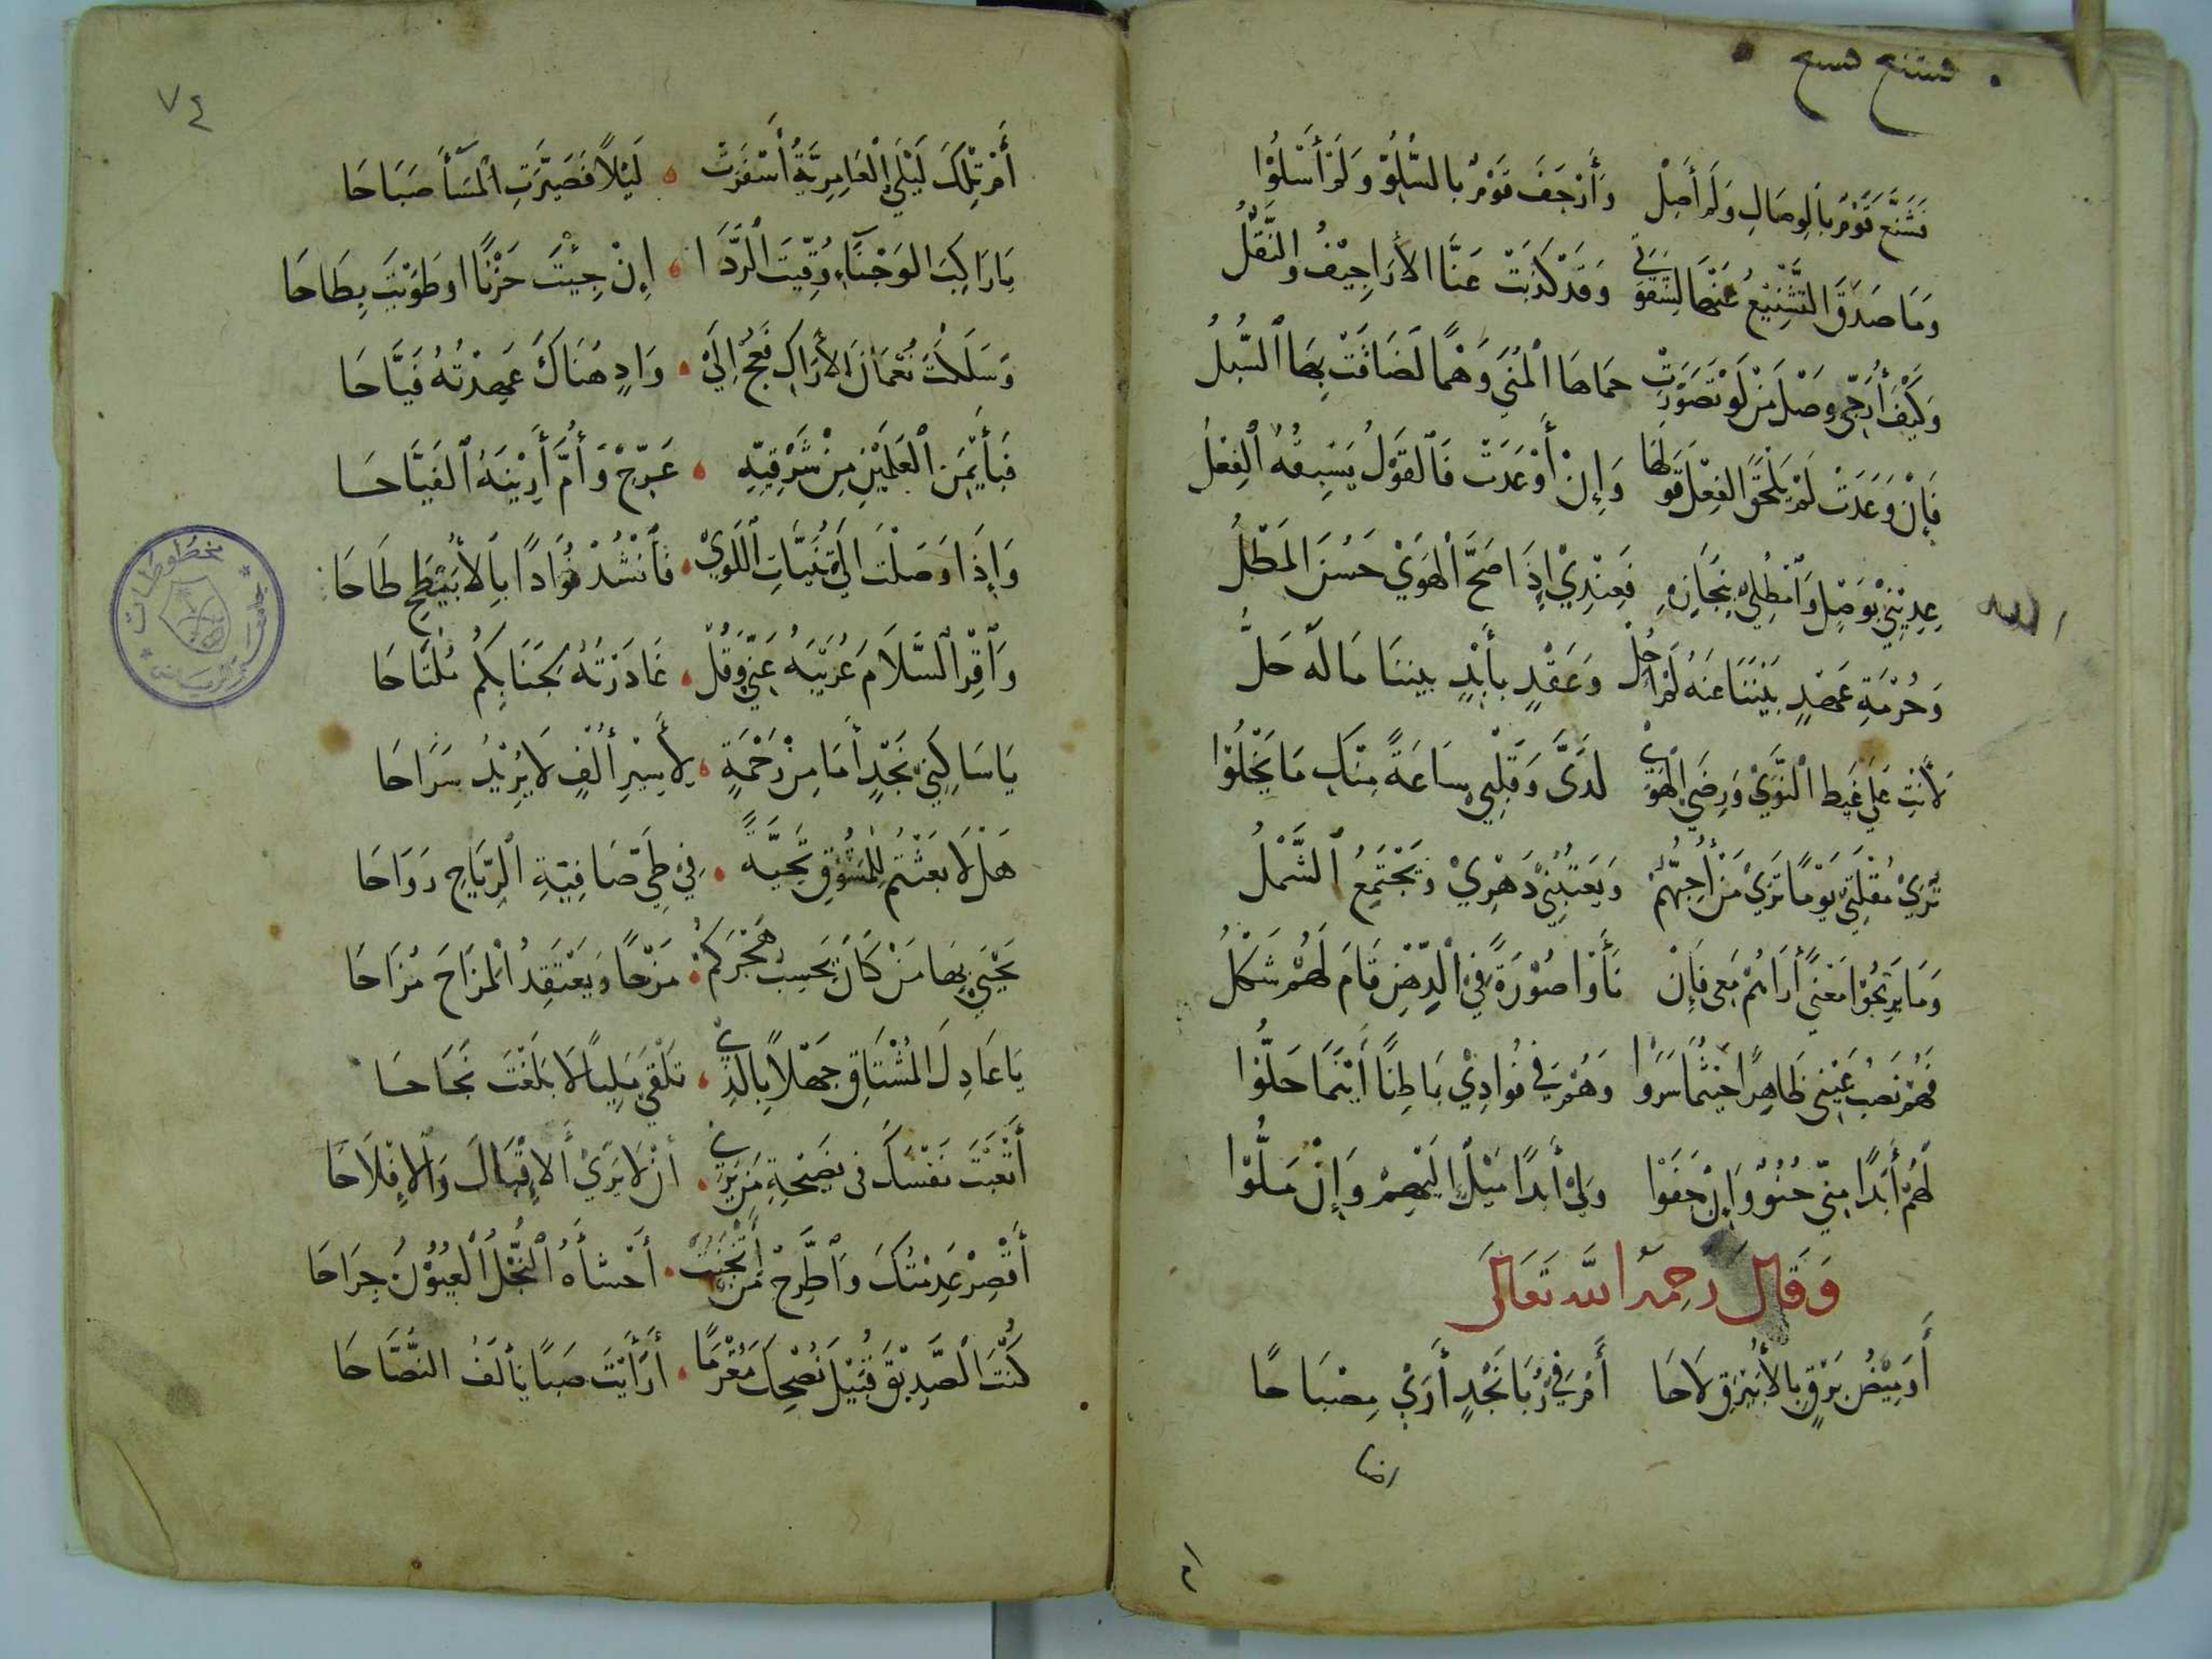 فشنع فسنع
فَشَنَّعَ قَوْمٌ بِالوِصَالِ وَلَمْ أَصِلْ وَأَرْجَفَ قَوْمٌ بالسُّلُوِّ وَلَمْ أَسْلُوْا
وَمَا صَدَقَ التَّشْنِيْعُ عَنْهَا لِشَقْوَتِي وَقَدْ كَذَبَتْ عَنَّا الأَرَاجِيْفُ والنَّقْلُ
وَكَيْفَ أُرَجِّي وَصْلَ مَنْ لَوْ تَصَوَّرَتْ حَمَاهَا الْمُنَي وَهْمًا لَضَاقَتْ بِهَا السُّبلُ
فَإِنْ وَعَدَتْ لَمْ يَلْحَقِ الفِعْلُ قَوْلَهَا وَإِنْ أَوْعَدَتْ فَالقَوْلُ يَسْبِقُهُ الْفِعْلُ
عِدِيْنِيْ بِوَصْلٍ وَامْطُلِي بِنِجَازِهِ فَعِنْدِيْ إِذَا صَحَّ الْهَوَيْ حَسُنَ المَطْلُ
وَحُرْمَةِ عَهْدٍ بَيْنَنَا عَنْهُ لَمْ احُلْ وَعَقْدٍ بأَيْدٍ بيننا مَا لَهُ حَلُّ
لأَنْتِ عَلَي غَيْظِ النَّوَيْ وَرِضَي الْهَوَيْ لَدَيَّ وَقَلْبِيْ سَاعَةً مِنْكِ مَا يَخْلُوْا
تُرَيْ مُقْلَتِيْ يَوْمًا تَرَيْ مَنْ أُحِبُّهُمْ وَيَعْتِبُنِيْ دَهْرِيْ وَيَجْتَمِعُ الشَّمْلُ
وَمَا بَرِحُوْا مَعْنًي أَرَاهُمْ مَعِي فَإِنْ نَأَوْا صُوْرَةً فِيْ الذِّهْنِ قَامَ لَهُمْ شَكْلُ
فَهُمْ نَصْبُ عَيْنِي ظَاهِرًا حَيْثُمَا سَرَوْا وَهُمْ فِي فُوَادِيْ بَاطِنًا أَيْنَمَا حَلُّوْا
لَهُمْ أَبَدًا مِنِّي حُنُوٌّ وَإِنْ جَفَوْا وَلِيْ أَبَدًا مَيْلٌ إِلَيْهِمْ وَإِنْ مَلُّوْا
وَقَالَ رَحِمَهُ اللَّه تَعَالَي
أَوَمِيْضُ بَرْقٍ بِالأُبَيْرِقِ لَاحَا أَمْ فِيْ رُبَا نَجْدٍ أَرَيْ مِصْبَاحًا
٧٤
أَمْ تِلْكَ لَيْلَي الْعَامِرِيَّةُ أَسْفَرَتْ لَيْلاً فَصَيَّرَتِ الْمَسَآ صَبَاحَا
يَارَاكِبَ الوَجْنَآءِ وُقِّيْتَ الْرَّدَا إِنْ جِئْتَ حَزْنًا اوطَوَيْتَ بِطَاحَا
وَسَلَكْتَ نُعْمَانَ الأَرَاكِ فَعُجْ إِلَيْ وَادٍ هُنَاكَ عَهِدْتُهُ فَيَّاحَا
فَبِأَيْمَنِ الْعَلَمَيْنِ مِنْ شَرْقِيِّهِ عَرِّجْ وَأُمَّ أَرِيْنَهُ الْفَيَّاحَا
وَإِذَا وَصَلْتَ إِلَي ثَنِيَّاتِ اللَّوَيْ فَأنْشُدْ فُؤَادًا بِالأُبَيْطِحِ طَاحَا
وَاقْرِ السَّلَامَ عُرَيْبَهُ عَنِّيْ وَقُلْ غَادَرْتُهُ لِجَنَابِكُمْ مُلْتَاحَا
يَاسَاكِنِيْ نَجْدٍ أَمَا مِنْ رَحْمَةٍ لِأَسِيْرِ أُلْفٍ لَا يُرِيْدُ سَرَاحَا
هَلْ لَا بَعَثْتُمْ لِلْمَشُوْقِ تَحِيَّةً فِيْ طَيِّ صَافِيَةِ الْرِّيَاحِ رَوَاحَا
يَحْيَيْ بِهَا مَنْ كَانَ يَحْسِبُ هَجْرَكُمْ مَزْحًا وَيَعْتَقِدُ الْمَزَاحَ مُزَاحَا
يَا عَاذِلَ المُشْتَاقِ جَهْلاً بِالَّذِيْ تَلْقَي مَلِيًا لَا بَلَغْتَ نَجَاحَا
أَتْعَبْتَ نَفْسَكَ فِي نَصِيْحَةِ مَنْ يَرَيْ أنْ لَا يَرَيْ أَلإِقْبَالَ وَالإِفْلَاحَا
أَقْصِرْ عَدِمْتُكَ وَاطَّرِحْ مَنْ أَثْخَنَتْ أَحْشَآءَهُ النُّجْلُ الْعُيُوْنُ جِرَاحَا
كُنْتَ الصَّدِيْقَ قُبَيْلَ نُصْحِكَ مُغْرَمًا أَرَأَيْتَ صَبًا يَأْلَفُ النُّصَّاحَا